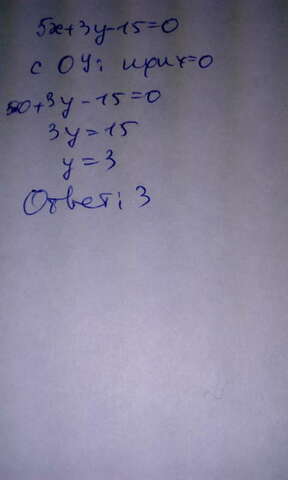 5x+3y-15=0
с OY: при x=0
5·0+3y-15=0
3y=15
y=3
Ответ: 3